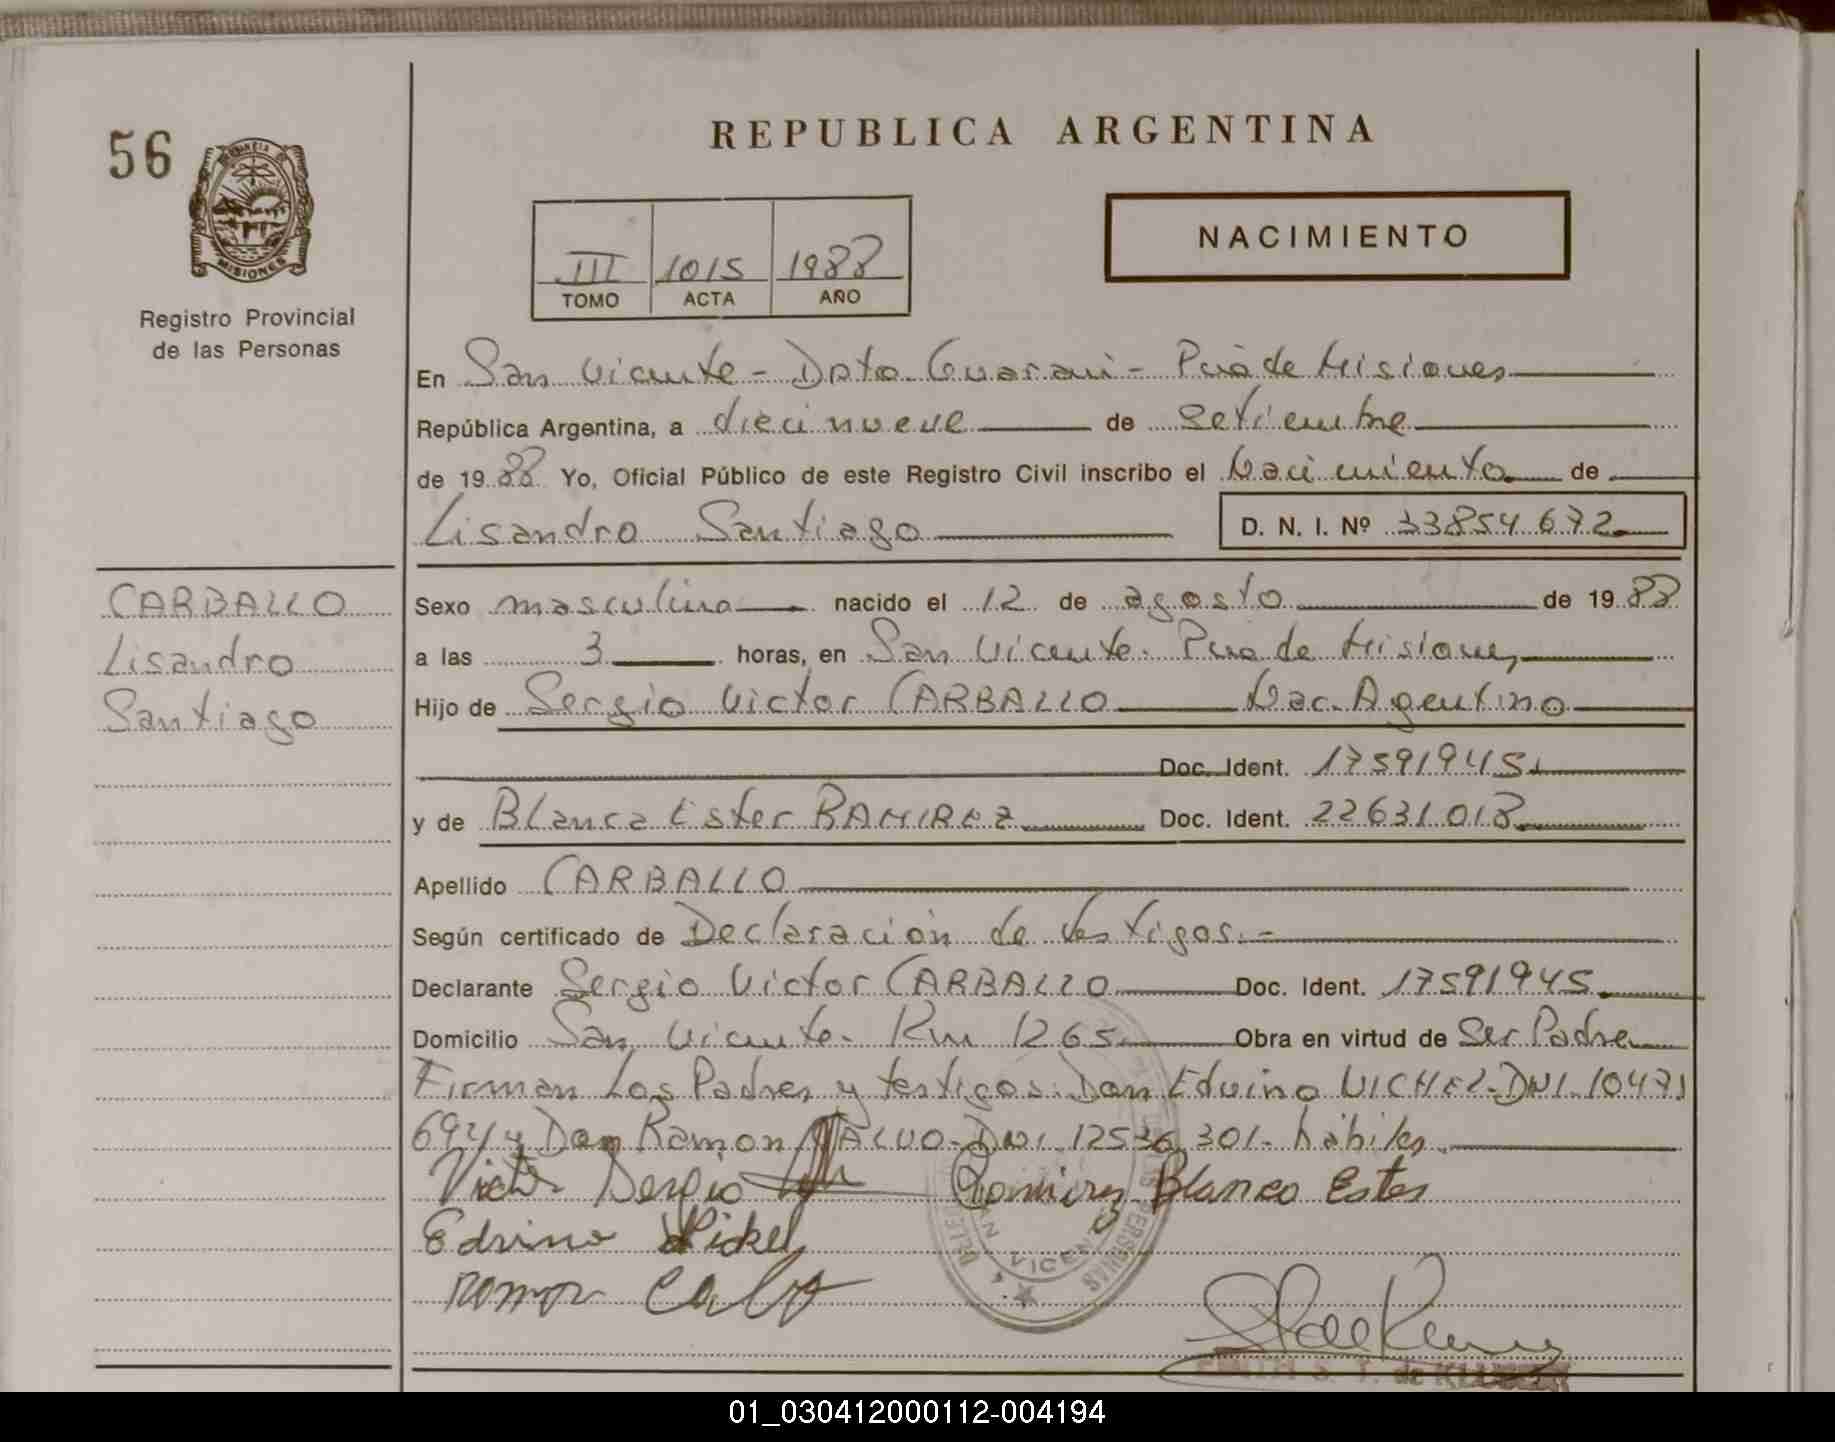 56
PROVINCIA DE
MISIONES
Registro Provincial
de las Personas
REPUBLICA ARGENTINA
III 1015 1988
TOMO ACTA AÑO
NACIMIENTO
En San Vicente - Dpto. Guarani - Pcia de Misiones
República Argentina, a diecinueve de setiembre
de 1988 Yo, Oficial Público de este Registro Civil inscribo el Nacimiento de
Lisandro Santiago D. N. I. Nº 33854672
CARBALLO
Lisandro
Santiago
Sexo masculino nacido el 12 de agosto de 1988
a las 3 horas, en San Vicente. Pcia de Misiones
Hijo de Sergio Victor CARBALLO Nac. Agentino
Doc. Ident. 17591945
y de Blanca Ester RAMIREZ Doc. Ident. 22631018
Apellido CARBALLO
Según certificado de Declaración de testigos.-
Declarante Sergio Victor CARBALLO Doc. Ident. 17591945
Domicilio San Vicente. Km 1265 Obra en virtud de Ser Padre
Firman Los Padres y testigos: Don Edvino VICHEL-DNI-10471
694 y Don Ramon CALVO-DNI 12536 301- hábiles.
Victor Sergio Ramirez Blanca Ester
Edvino Wickel
Ramon Calvo
SAN VICENTE
DE LAS PERSONAS
S. T. de KLU
01_030412000112-004194